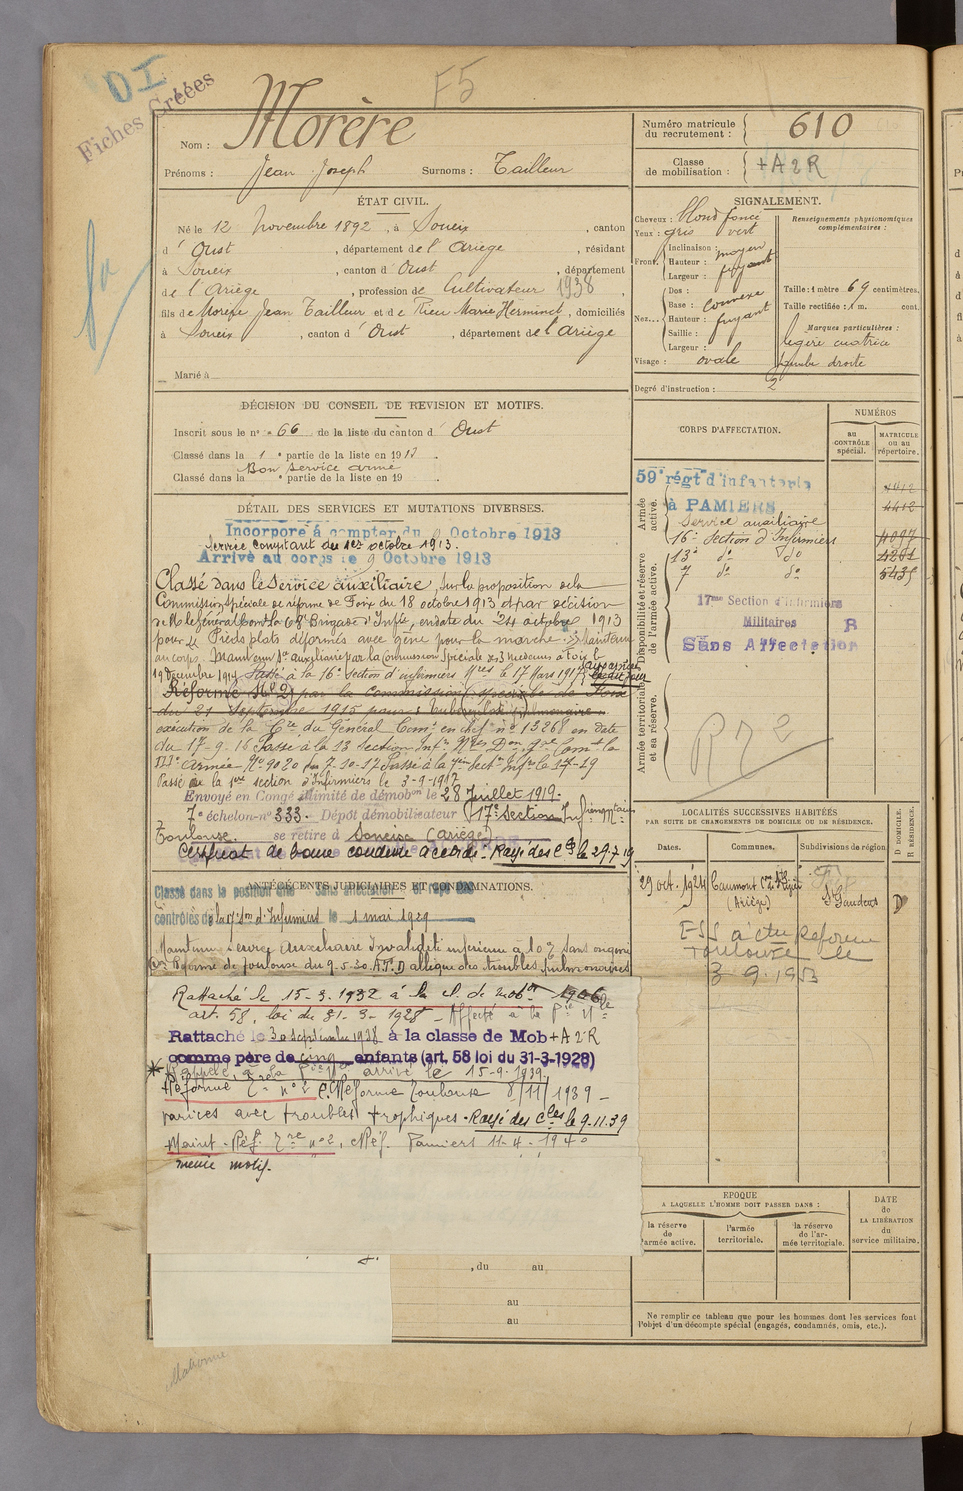 DI
Fiches Créées
F5
Nom : Morère
Prénoms : Jean Joseph Surnoms : Tailleur
Numéro matricule du recrutement : 610
Classe de mobilisation : + A 2 R
ÉTAT CIVIL.
Né le 12 Novembre 1892, à Soueix, canton
d'Oust, département de l'Ariège, résidant
à Soueix, canton d'Oust, département
de l'Ariège, profession de Cultivateur 1938
fils de Morère Jean Tailleur et de Rieu Marie , domiciliés
à Soueix, canton d'Oust, département de l'Ariège
Marié à
SIGNALEMENT.
Cheveux : blond foncé
Yeux : gris vert
Front : Inclinaison : moyen
Hauteur : fuyant
Largeur :
Nez : Dos :
Base : convexe
Hauteur : fuyant
Saillie :
Largeur :
Visage : ovale
Renseignements physionomiques complémentaires :
Taille : 1 mètre 69 centimètres.
Taille rectifiée : 1 m. cent.
Marques particulières :
légère cicatrice
jambe droite
Degré d'instruction : 2
DÉCISION DU CONSEIL DE REVISION ET MOTIFS.
Inscrit sous le n° 66 de la liste du canton d'Oust
Classé dans la 1e partie de la liste en 1913
Bon service armé
Classé dans la e partie de la liste en 19
DÉTAIL DES SERVICES ET MUTATIONS DIVERSES.
Incorporé à compter du 9 Octobre 1913
Service comptant du 1er octobre 1913.
Arrivé au corps le 9 Octobre 1913
Classé dans le Service auxiliaire, sur la proposition de la
Commission spéciale de réforme de Foix du 18 octobre 1913 et par décision
de M. le Général Cont la 68e Brigade d'Infie, en date du 24 octobre 1913
pour : Pieds plats déformés avec gêne pour la marche. Maintenu
au corps. Maintenu Sce auxiliaire par la Commission spéciale des 3 médecins
19 Décembre 1914 Passé à la 16e Section d'infirmiers Mres le 17 Mars 1915
Réformé N° 2 par la Commission spéciale de Foix
du 21 Septembre 1915 pour : tuberculose pulmonaire
exécution de la Cre du Général Comt en chef n° 13268 en date
du 17-9-16 Passé à la 13 Section Infrs
IIIe Armée N° 9020 du 7-10-17 Passé à la 7e Secton Infrs
Passé à la section d'Infirmiers le 3-9-1917
Envoyé en Congé illimité de démobon le 28 Juillet 1919.
7e échelon n° 333. Dépôt démobilisateur 17e Section Infirmiers Mres
Toulouse. se retire à Soueix (Ariège)
Certificat de bonne conduite accordé. Rayé des Cles le 29.7.19
ANTÉCÉDENTS JUDICIAIRES ET CONDAMNATIONS.
Classé dans la position dite Sans affectation et rayé des
contrôles de la 17e Son d'Infirmiers le 1 mai 1929
Maintenu Service Auxiliaire Invalidité inférieure à 10 % sans origine
Con Réforme de Toulouse du 9-5-30 allègue des troubles pulmonaires
Rattaché le 15-3-1932 à la cl. de mobon 1906
art. 58, loi du 31-3-1928 - Affecté à la
Rattaché le 30 septembre 1938 à la classe de Mob + A 2 R
comme père de cinq enfants (art. 58 loi du 31-3-1928)
* Rappelé à arrivé le 15-9-1939
Réformé n° 2 C. Réforme Toulouse 8/11/1939 -
varices avec troubles trophiques - Rayé des Cles le 9.11.39
Maint. Réf. n° 2, Réf. Pamiers 11-4-1940
même motif.
CORPS D'AFFECTATION.
NUMÉROS
au CONTRÔLE spécial.
MATRICULE ou au répertoire.
Armée active.
59e régt d'infanterie
à PAMIERS
Service auxiliaire
4412
4412
16e Section d'Infirmiers 4097
13e do do 4261
7 do do 5435
Disponibilité et réserve de l'armée active.
17me Section d'Infirmiers
Militaires R
Sans Affectation
Armée territoriale et sa réserve.
R72
LOCALITÉS SUCCESSIVES HABITÉES
PAR SUITE DE CHANGEMENTS DE DOMICILE OU DE RÉSIDENCE.
Dates. Communes. Subdivisions de région. D DOMICILE. R RÉSIDENCE.
29 oct. 1924 Caumont (Ariège) St Gaudens D
Toulouse le
3 9.1953
EPOQUE
A LAQUELLE L'HOMME DOIT PASSER DANS :
la réserve de l'armée active.
l'armée territoriale.
la réserve de l'armée territoriale.
DATE de LA LIBÉRATION du service militaire.
, du au
au
au
Ne remplir ce tableau que pour les hommes dont les services font
l'objet d'un décompte spécial (engagés, condamnés, omis, etc.).